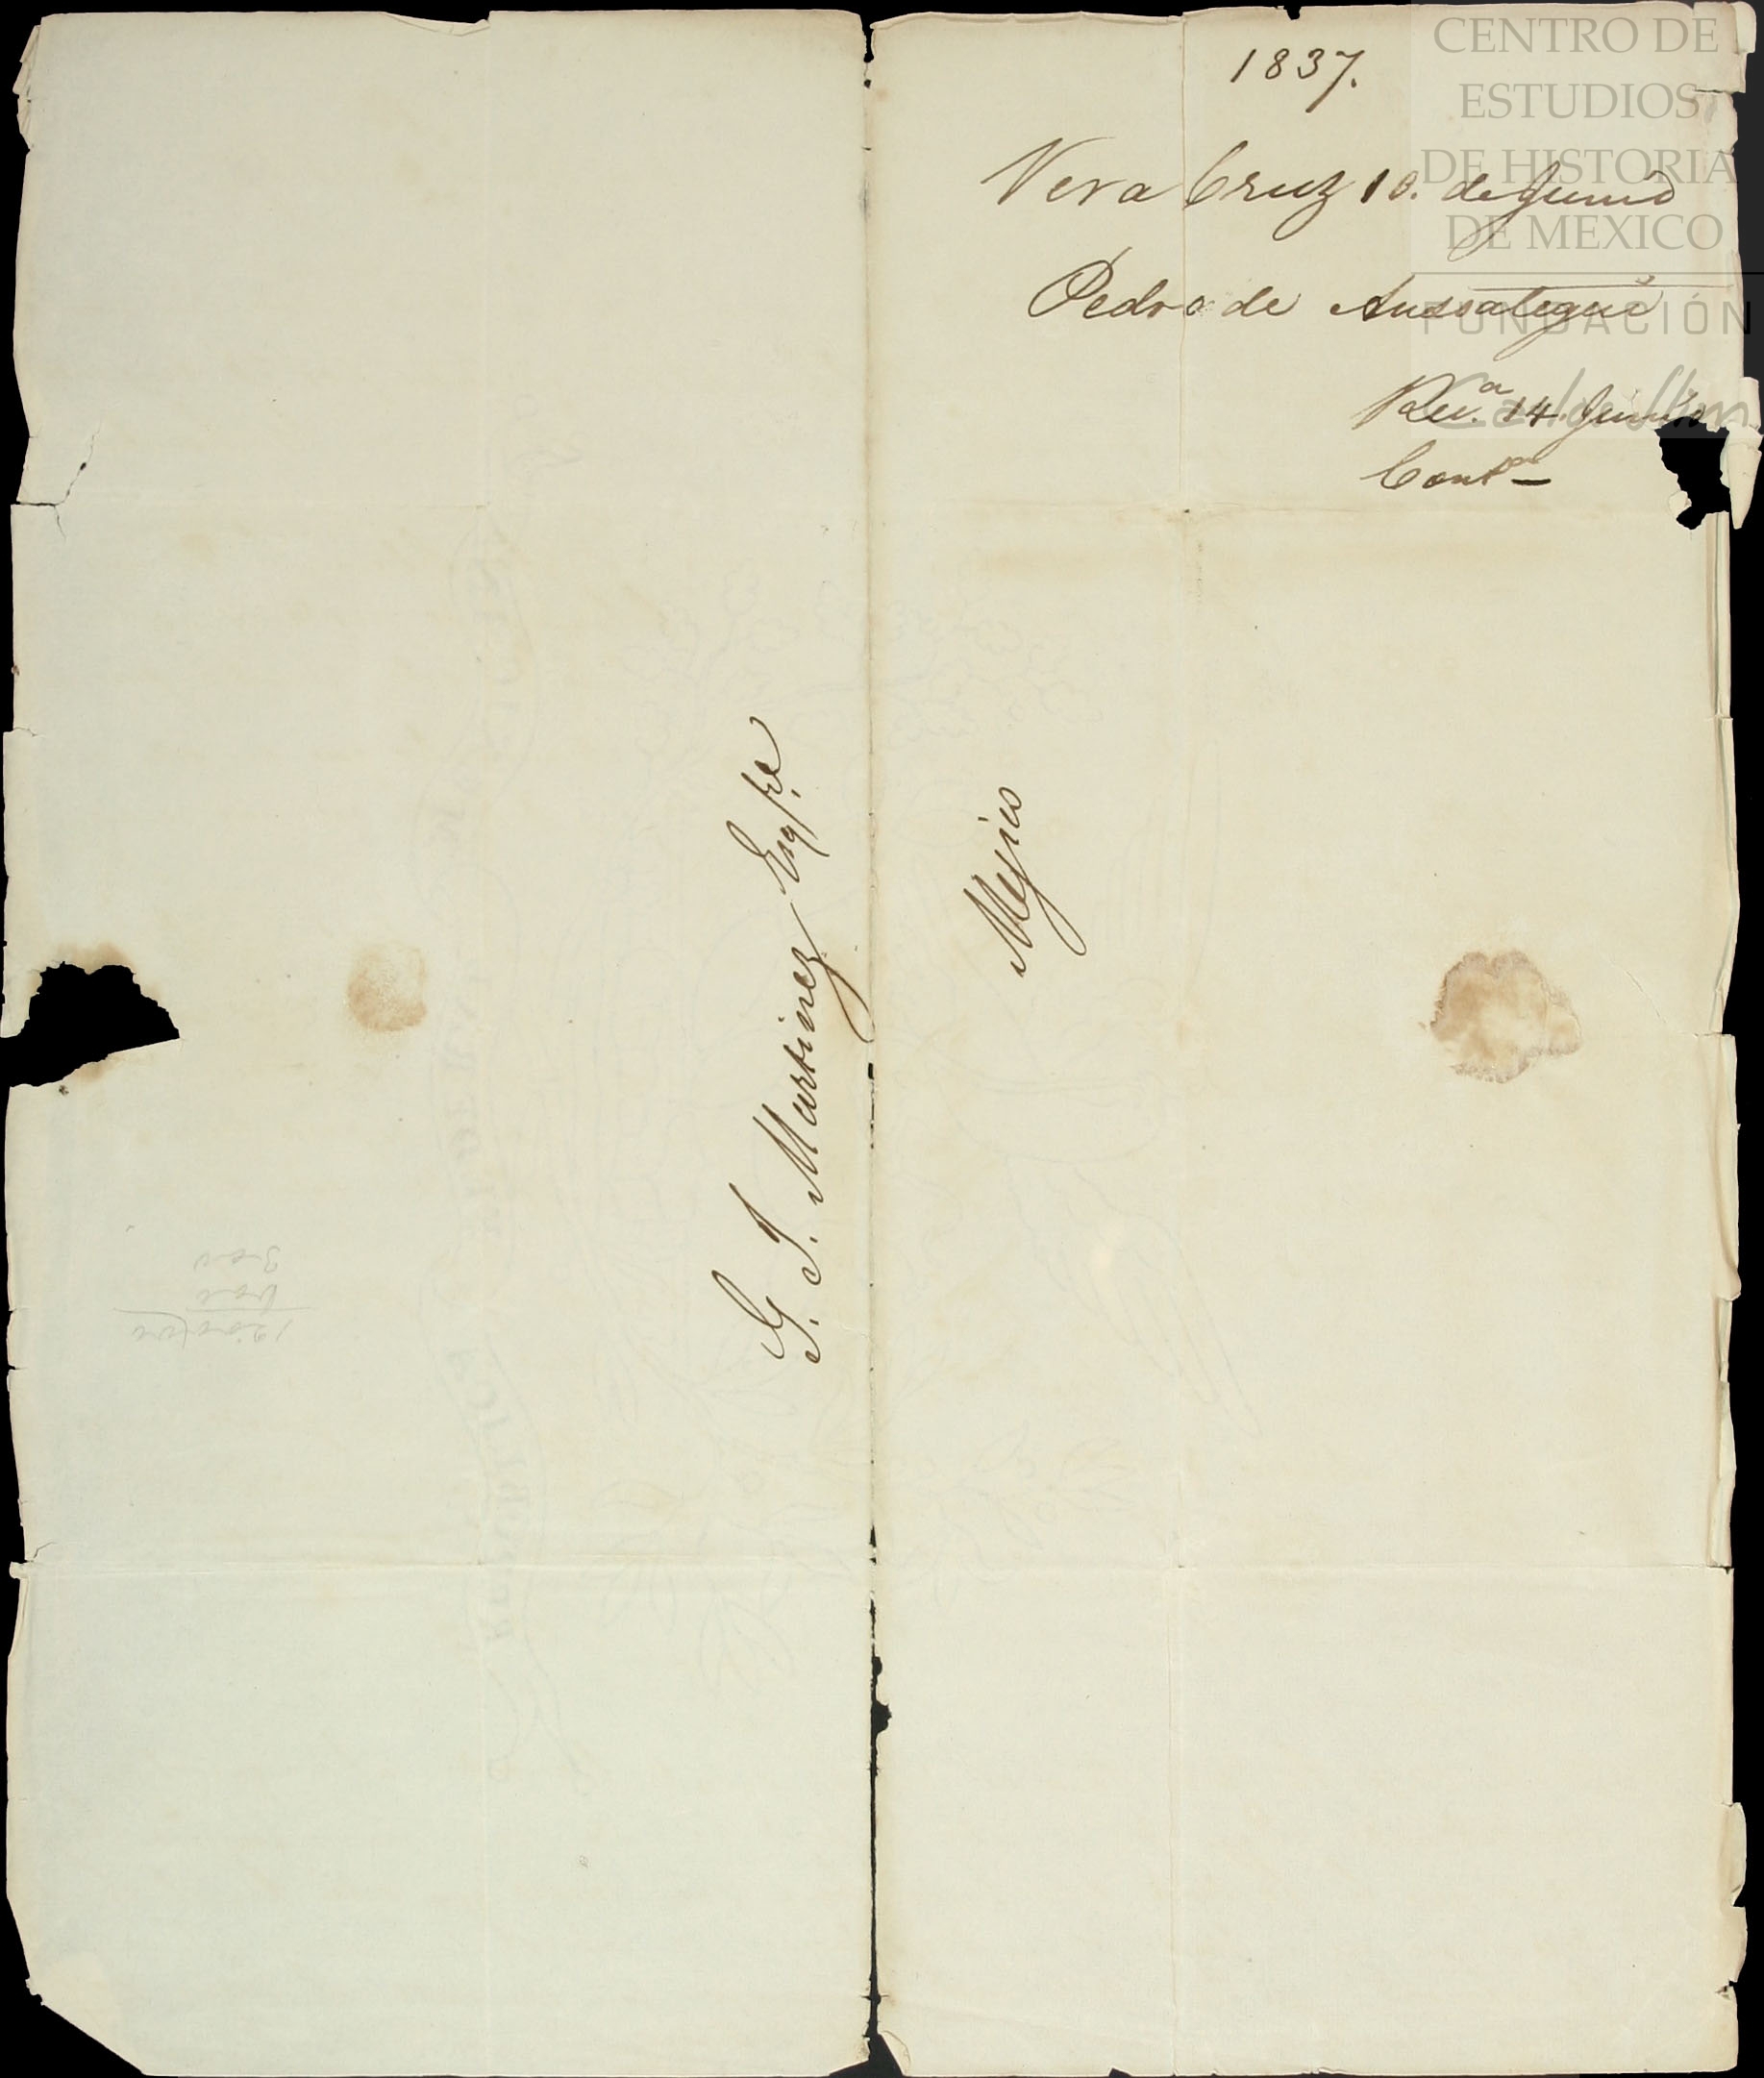 1837.
Vera Cruz 10. de Junio
Pedro de Ansoategui
Rec.a 14. Junio
Conta
G. J. Martinez Esqre
Mejico
CENTRO DE
ESTUDIOS
DE HISTORIA
DE MEXICO
FUNDACIÓN
Carlos Slim